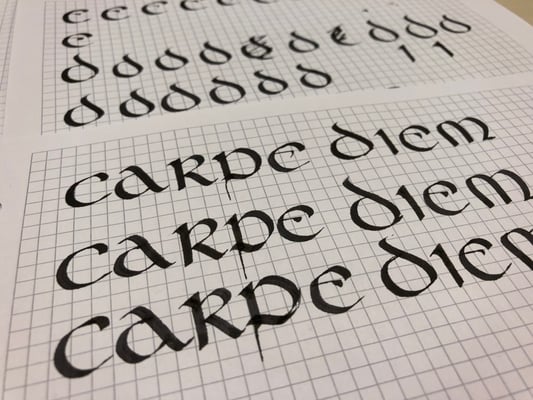 e e e e e e
e
d d d d d d d d
d d d d d d ı ı
carpe diem
carpe diem
carpe diem